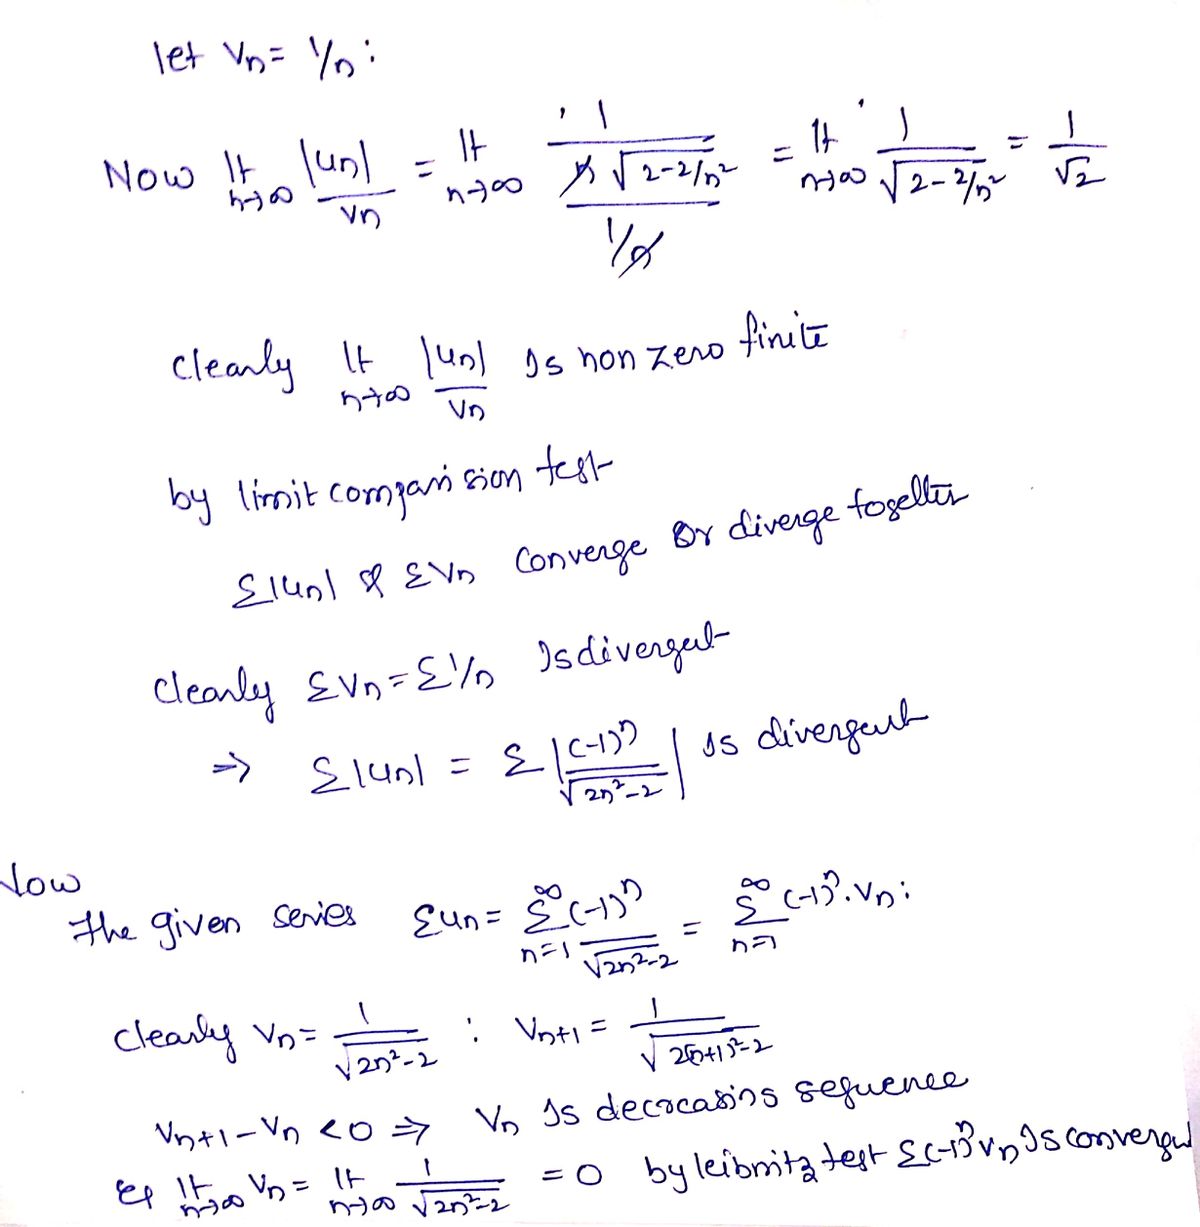 let Vn = 1/n :
Now lt n→∞ |un|/Vn = lt n→∞ (1/(n√(2-2/n²)))/(1/n) = lt n→∞ 1/√(2-2/n²) = 1/√2
clearly lt n→∞ |un|/Vn Is non zero finite
by limit comparision test
Σ|un| & ΣVn Converge Or diverge together
clearly ΣVn = Σ1/n Is divergent
⇒ Σ|un| = Σ|(-1)ⁿ/√(2n²-2)| Is divergent
Now
the given series Σun = Σ_{n=1}^{∞} (-1)ⁿ/√(2n²-2) = Σ_{n=1}^{∞} (-1)ⁿ.Vn :
clearly Vn = 1/√(2n²-2) : Vn+1 = 1/√(2(n+1)²-2)
Vn+1 - Vn < 0 ⇒ Vn Is decreasing sequence
& lt n→∞ Vn = lt n→∞ 1/√(2n²-2) = 0 by leibnitz test Σ(-1)ⁿVn Is convergent